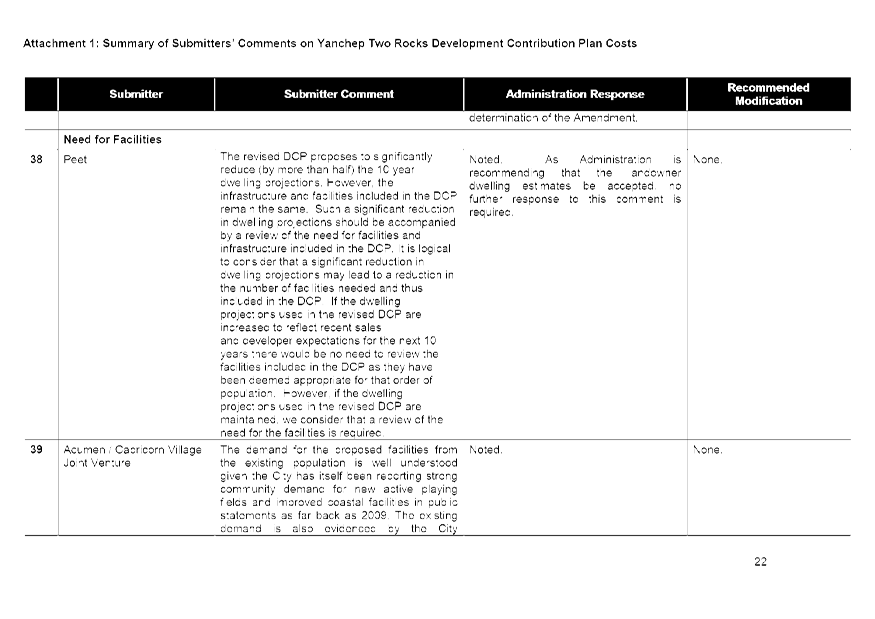 Attachment 1: Summary of Submitters' Comments on Yanchep Two Rocks Development Contribution Plan Costs
Submitter
Submitter Comment
Administration Response
Recommended
Modification
determination of the Amendment.
Need for Facilities
38
Peet
The revised DCP proposes to significantly
reduce (by more than half) the 10 year
dwelling projections. However, the
infrastructure and facilities included in the DCP
remain the same. Such a significant reduction
in dwelling projections should be accompanied
by a review of the need for facilities and
infrastructure included in the DCP. It is logical
to consider that a significant reduction in
dwelling projections may lead to a reduction in
the number of facilities needed and thus
included in the DCP. If the dwelling
projections used in the revised DCP are
increased to reflect recent sales
and developer expectations for the next 10
years there would be no need to review the
facilities included in the DCP as they have
been deemed appropriate for that order of
population. However, if the dwelling
projections used in the revised DCP are
maintained, we consider that a review of the
need for the facilities is required.
Noted. As Administration is
recommending that the landowner
dwelling estimates be accepted, no
further response to this comment is
required.
None.
39
Acumen / Capricorn Village
Joint Venture
The demand for the proposed facilities from
the existing population is well understood
given the City has itself been reporting strong
community demand for new active playing
fields and improved coastal facilities in public
statements as far back as 2009. The existing
demand is also evidenced by the City
Noted.
None.
22